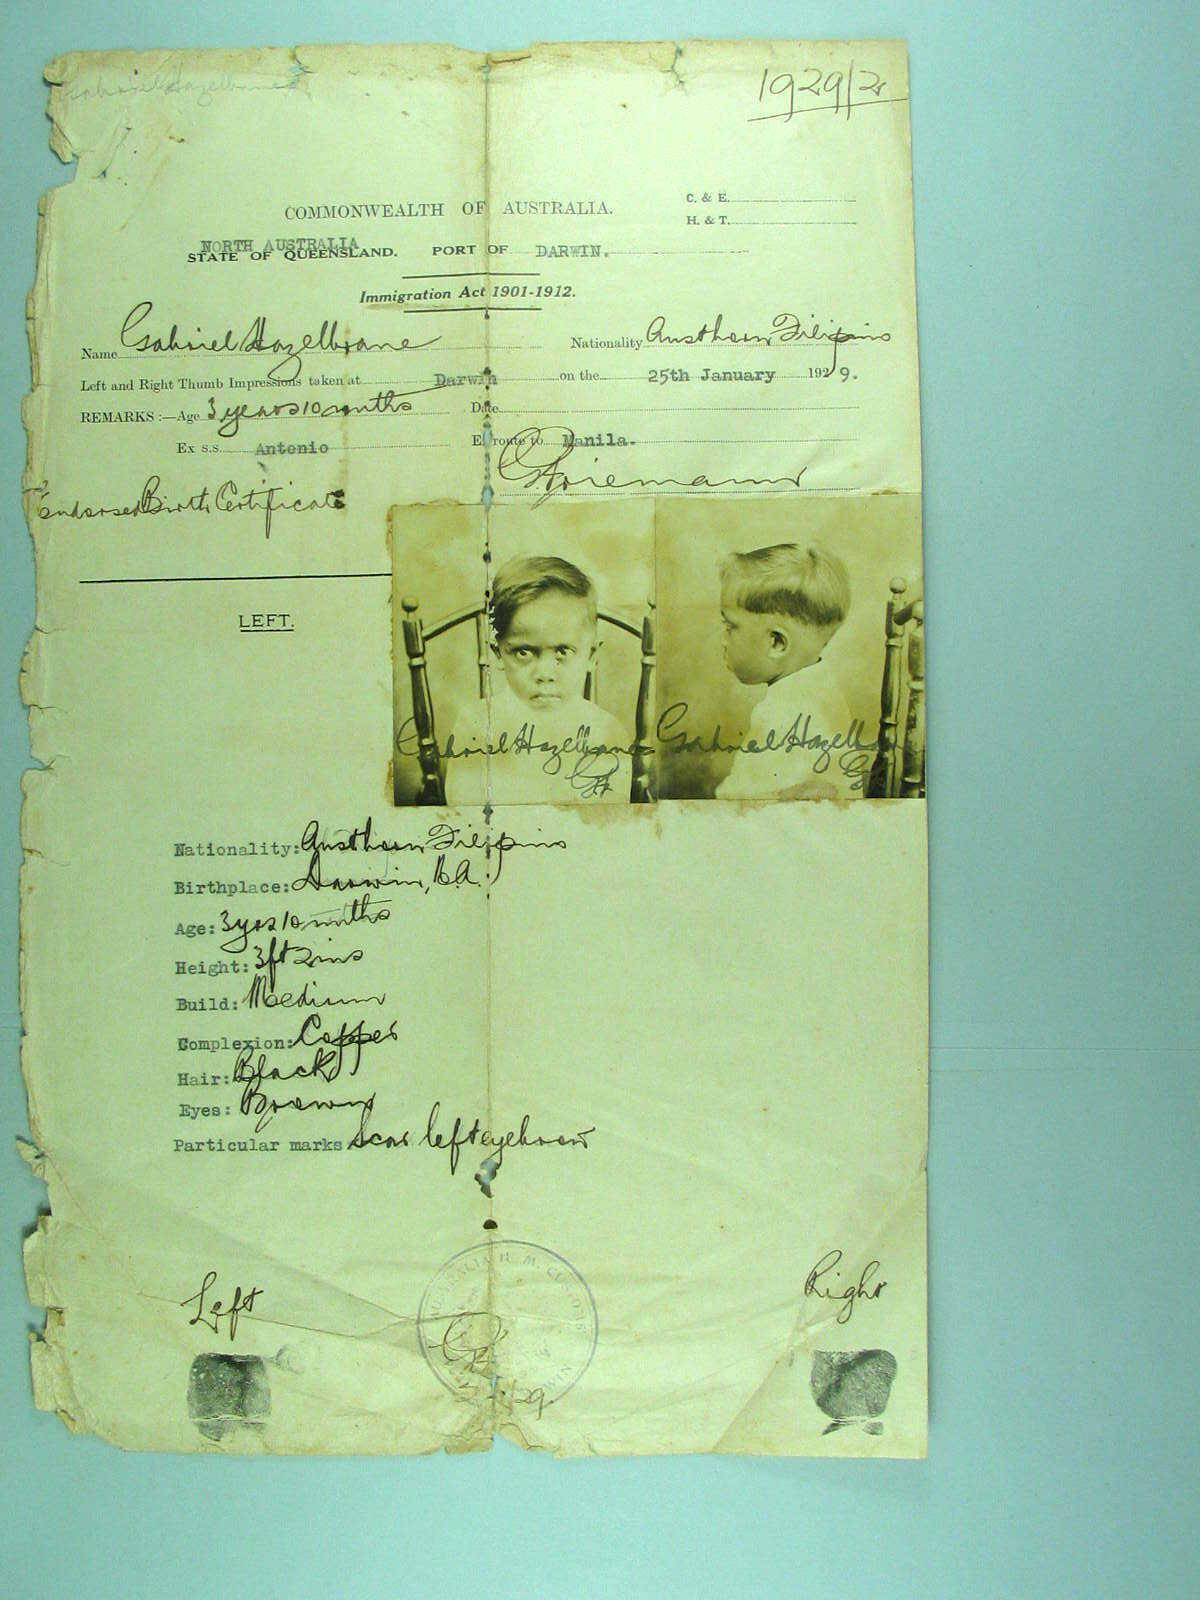 Gabriel Hazelbane
1929/2
COMMONWEALTH OF AUSTRALIA.
C. & E.
H. & T.
NORTH AUSTRALIA
STATE OF QUEENSLAND. PORT OF DARWIN.
Immigration Act 1901-1912.
Name Gabriel Hazelbane Nationality Austhern Filipino
Left and Right Thumb Impressions taken at Darwin on the 25th January 1929.
REMARKS :—Age 3 years 10 months Date
Ex s.s. Antonio En route to Manila.
Endorsed Birth Certificate
LEFT.
Gabriel Hazelbane
Gabriel Hazelba
Nationality: Austhern Filipino
Birthplace: Darwin, N.A.
Age: 3 yrs 10 mnths
Height: 3ft 2ins
Build: Medium
Complexion: Copper
Hair: Black
Eyes: Brown
Particular marks Scar left eyebrow
Left
Right